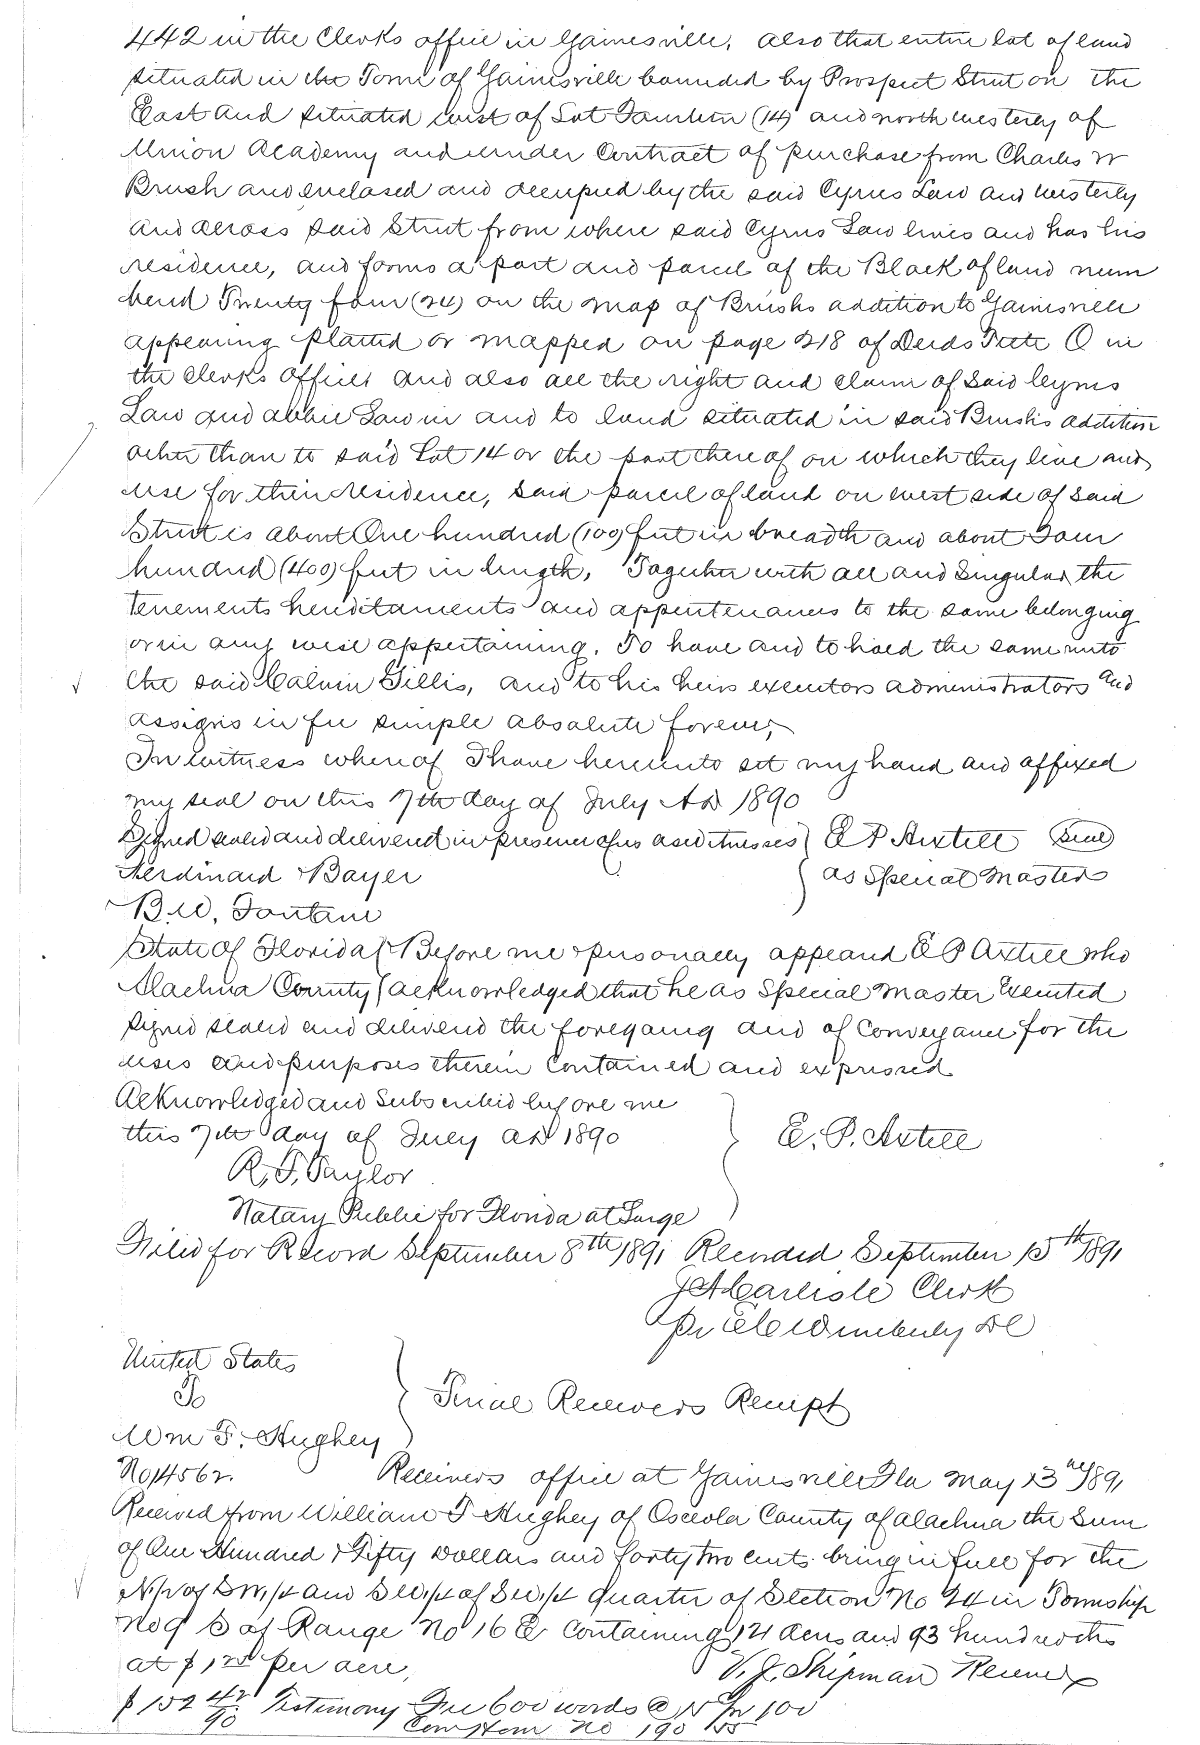 442 in the Clerks office in Gainesville, also that entire lot of land
situated in the Town of Gainesville bounded by Prospect Street on the
East and situated west of Lot Fourteen (14) and north westerly of
Union Academy and under Contract of purchase from Charles W
Brush and enclosed and occupied by the said Cyrus Law and westerly
and across said Street from where said Cyrus Law lives and has his
residence, and forms a part and parcel of the Block of land num
bered Twenty four (24) on the map of Brushs addition to Gainesville
appearing platted or mapped on page 218 of Deeds O in
the Clerks office and also all the right and claim of said Cyrus
Law and Abbie Law in and to land situated in said Brushs addition
other than to said Lot 14 or the part there of on which they live and
use for their residence, said parcel of land on west side of said
Street is about One hundred (100) feet in breadth and about Four
hundred (400) feet in length, Together with all and Singular the
tenements hereditaments and appertenances to the same belonging
or in any wise appertaining. To have and to hold the same unto
the said Calvin Gillis, and to his heirs executors administrators and
assigns in fee simple absolute forever,
In witness whereof I have hereunto set my hand and affixed
my seal on this 7th day of July AD 1890
Signed sealed and delivered in presence of us as witnesses } E P Axtell Seal
Ferdinard Bayer as Special Master
B.W. Fontain
State of Florida { Before me personally appeard E P Axtell who
Alachua County { acknowledged that he as Special Master Executed
signed sealed and delivered the foregoing and of Conveyance for the
uses and purposes therein contained and expressed
Acknowledged and Subscribed before me
this 7th day of July AD 1890 E. P. Axtell
R. F. Taylor
Notary Public for Florida at Large
Filed for Record September 8th 1891 Recorded September 15th 1891
J A Carlisle Clerk
Pr Wimberly DC
United States
To } Final Receivers Receipt
Wm F. Hughey
No 14562. Receivers office at Gainesville Fla May 23rd 1891
Received from William F Hughey of Osceola County of Alachua the Sum
of One Hundred & Fifty Dollars and forty two cents being in full for the
N½ of SW¼ and SW¼ of SE¼ quarter of Section No 24 in Township
No 9 S of Range No 16 E Containing 121 Acres and 93 hundredths
at $1.25 per acre, V. J. Shipman Receiver
$152 42 Testimony Fee 600 words @ 15 pr 100
90 No 190